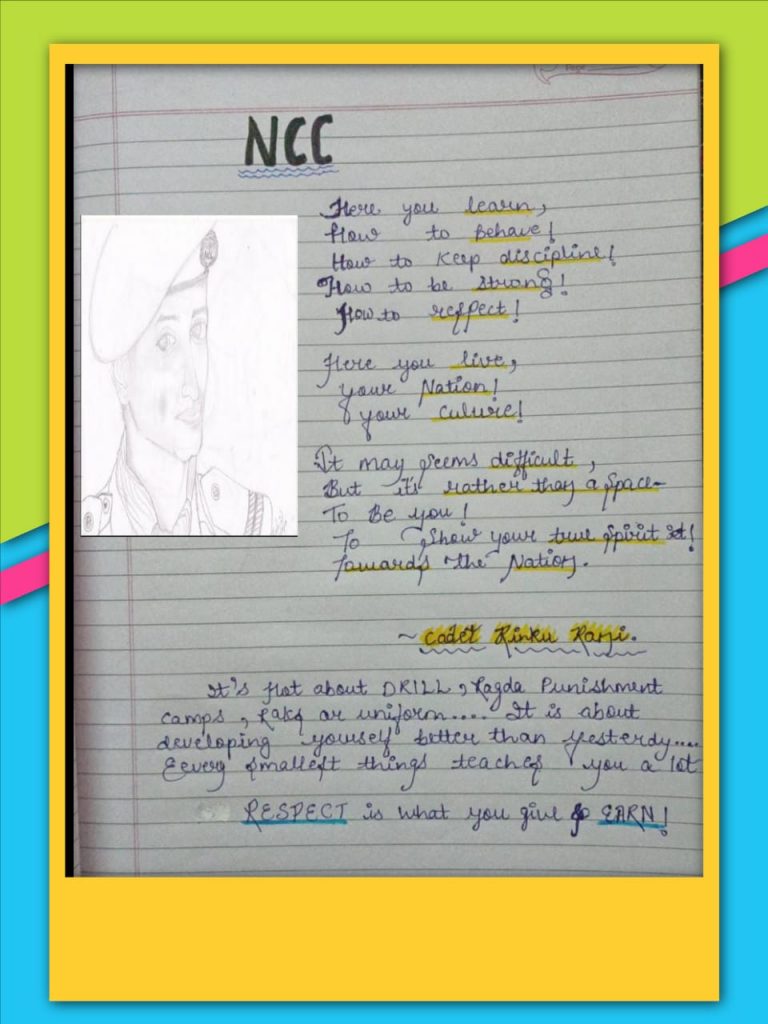 NCC
Here you learn,
How to Behave!
How to Keep discipline!
How to be Strong!
How to respect!
Here you live,
your Nation!
your culure!
It may seems difficult,
But it's rather than a Space-
To Be you!
To Show your true Spirit
Towards the Nation.
~ Cadet Rinku Rani.
It's not about DRILL, Ragda Punishment
camps, or uniform.... It is about
developing yourself better than yesterdy....
Eevery smallest things teaches you a lot
RESPECT is what you give & EARN!